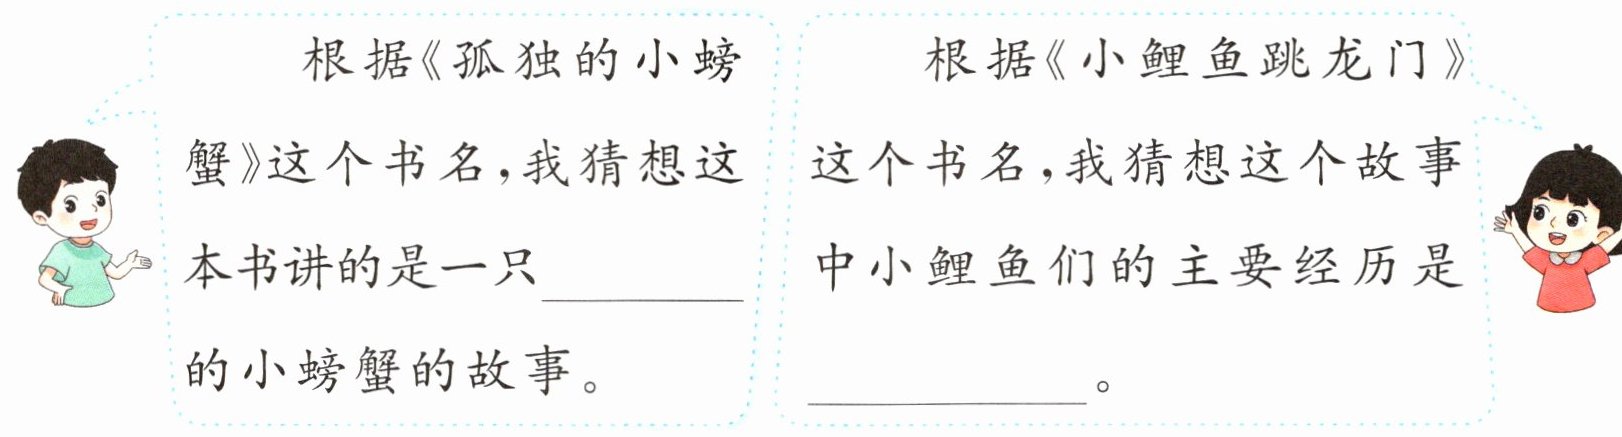 根据《孤独的小螃
蟹》这个书名,我猜想这
本书讲的是一只______
的小螃蟹的故事。
根据《小鲤鱼跳龙门》
这个书名,我猜想这个故事
中小鲤鱼们的主要经历是
______。